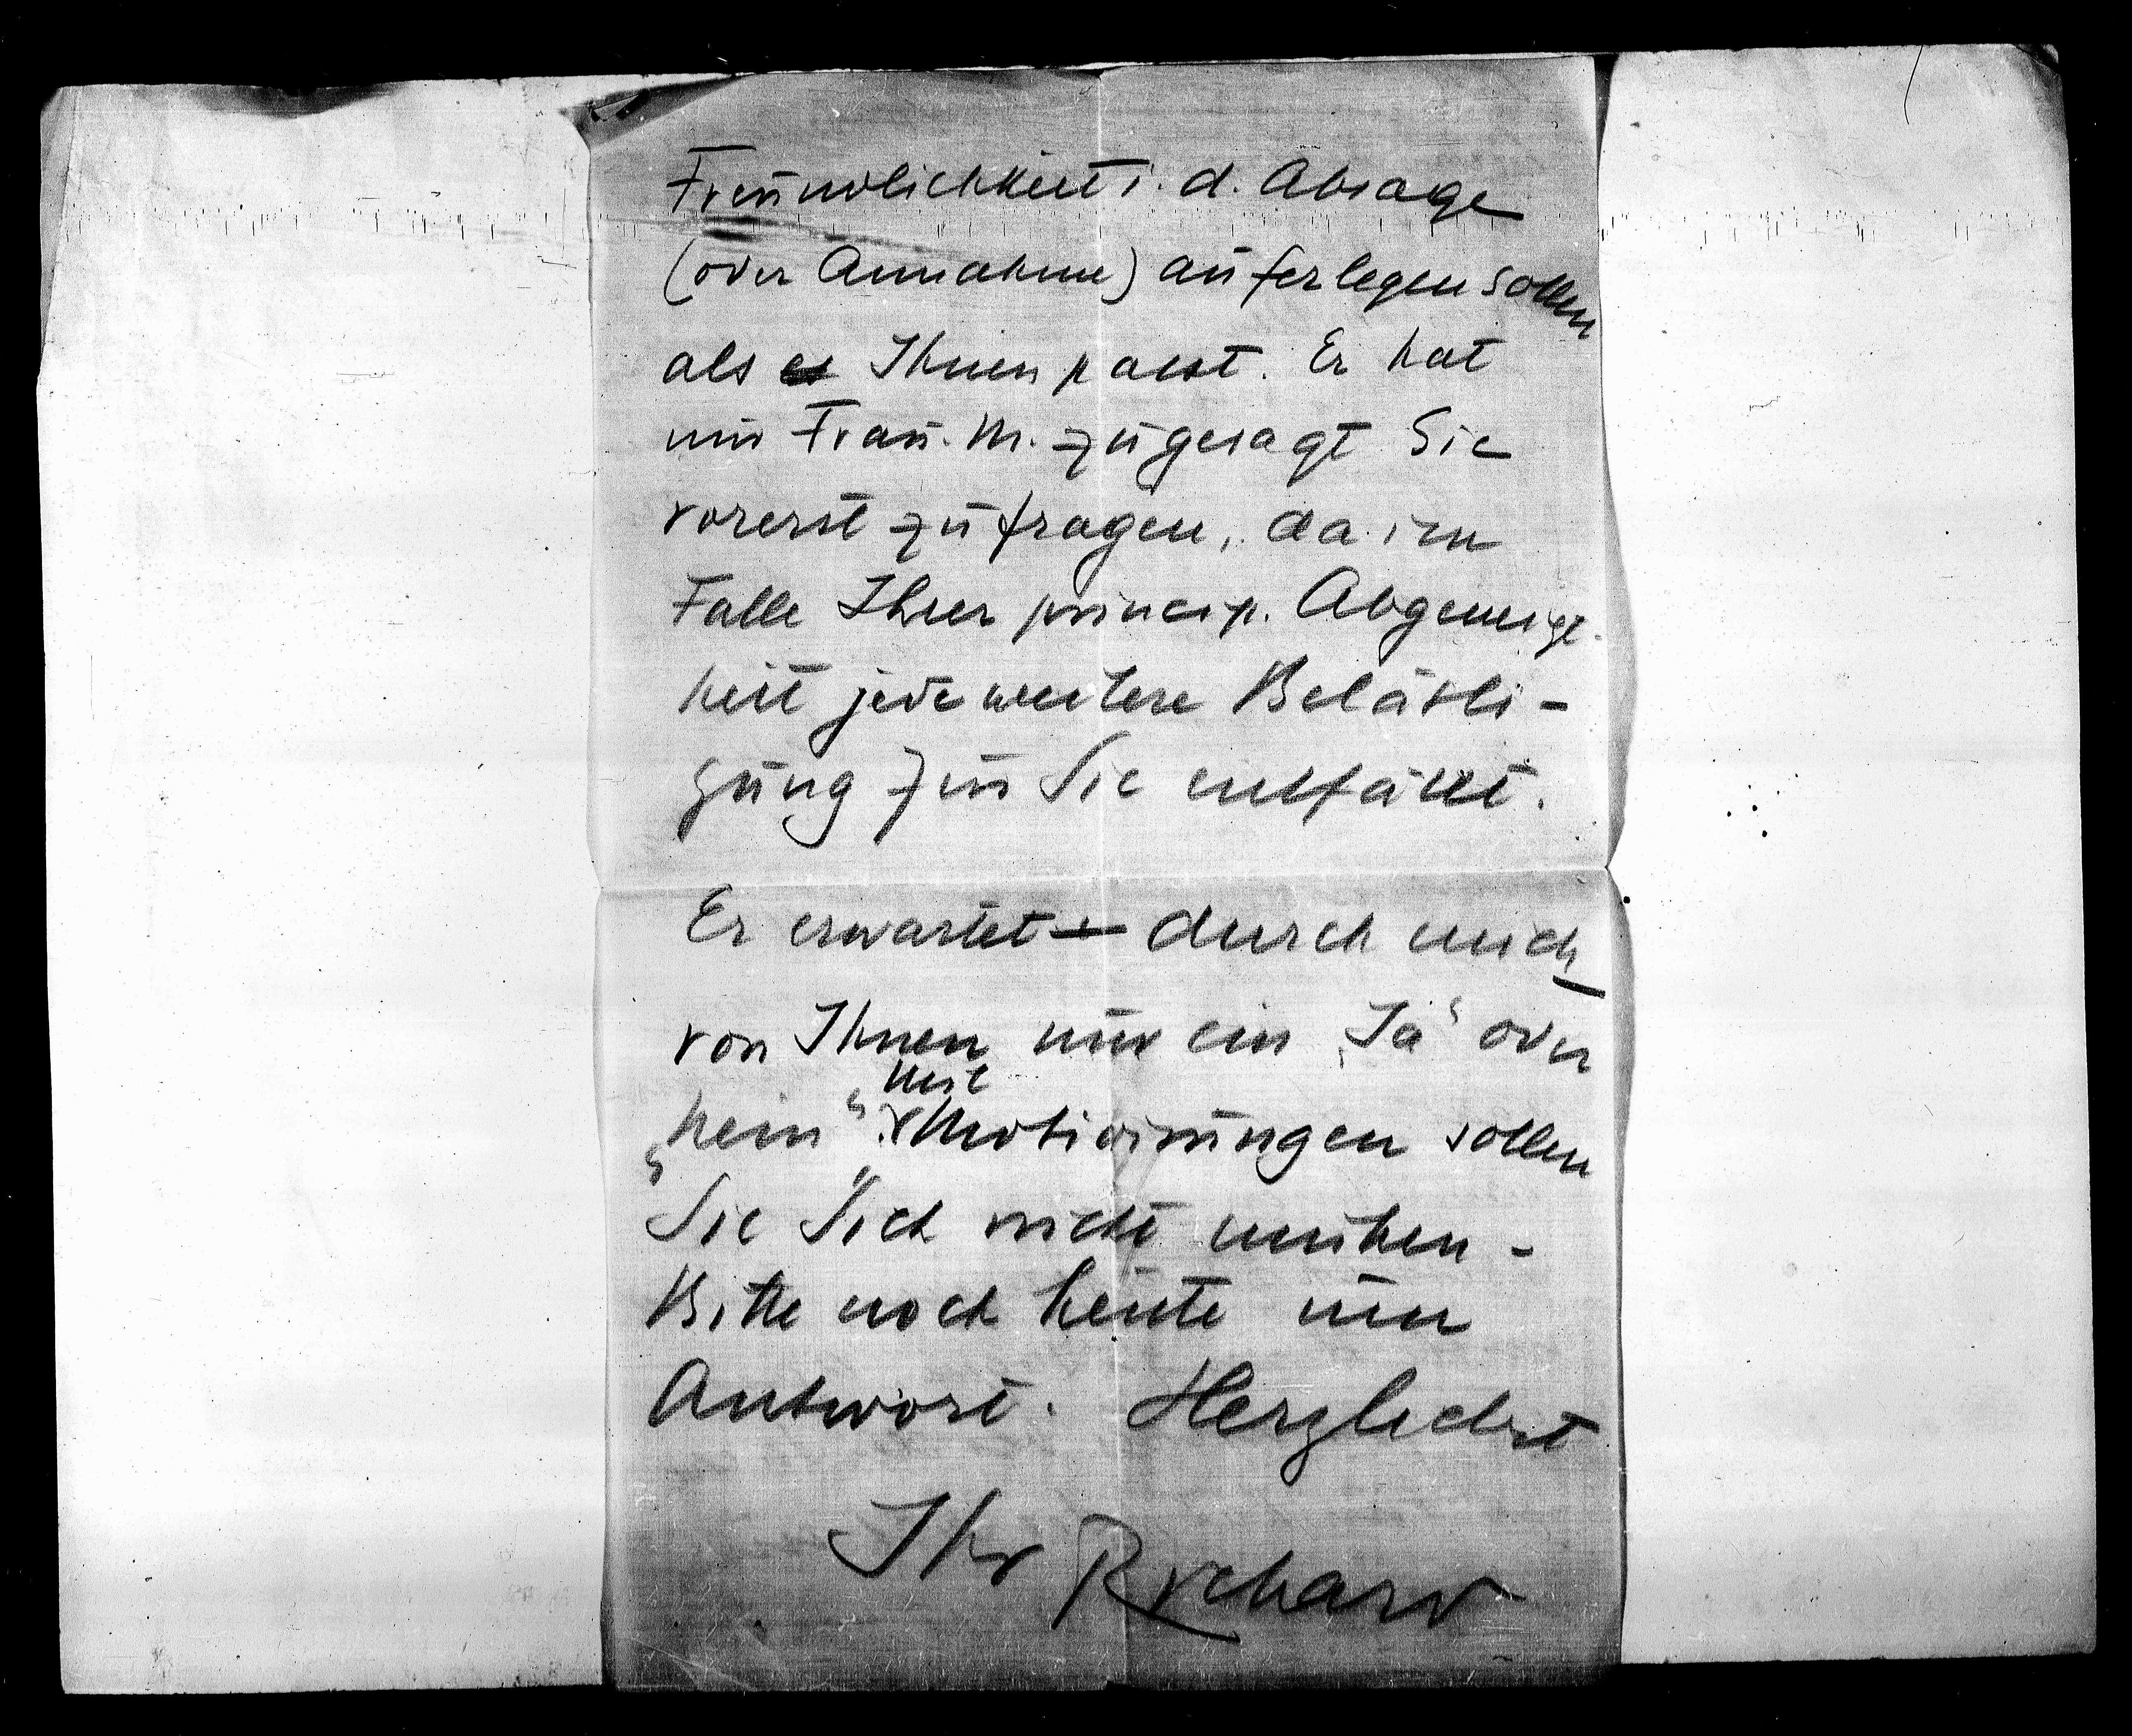 Freundlichkeit i. d. Absage
(oder Annahme) auferlegen sollen
als es Ihnen passt. Er hat
mir Frau. M. zugesagt Sie
vorerst zu fragen, da im
Falle Ihrer princip. Abgeneigt-
heit jede weitere Belästi-
gung für Sie entfällt.
Er erwartet – durch mich
von Ihnen nur ein „Ja“ oder
„nein“. Mit Motivirungen sollen
Sie Sich nicht mühen -
Bitte noch heute um
Antwort. Herzlichst
Ihr Richard